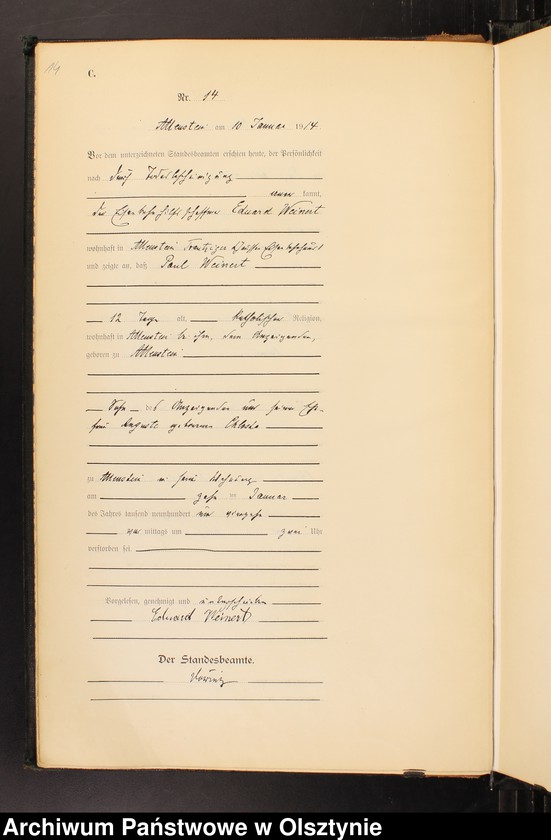 14
C.
Nr. 14
Allenstein am 10 Januar 1914
Vor dem unterzeichneten Standesbeamten erschien heute, der Persönlichkeit
nach durch Todesbescheinigung
kannt,
der Eisenbahnhilfsschaffner Eduard Weinert
wohnhaft in Allenstein
und zeigte an, daß Paul Weinert
12 Tage alt, katholischer Religion,
wohnhaft in Allenstein bei ihm, dem Anzeigenden,
geboren zu Allenstein
Sohn des Anzeigenden und seiner Ehe-
frau Auguste geborenen
zu Allenstein in seiner Wohnung
am Januar
des Jahres tausend neunhundert und vierzehn
vormittags um zwei Uhr
verstorben sei
Vorgelesen, genehmigt und unterschrieben
Eduard Weinert
Der Standesbeamte.
Archiwum Państwowe w Olsztynie